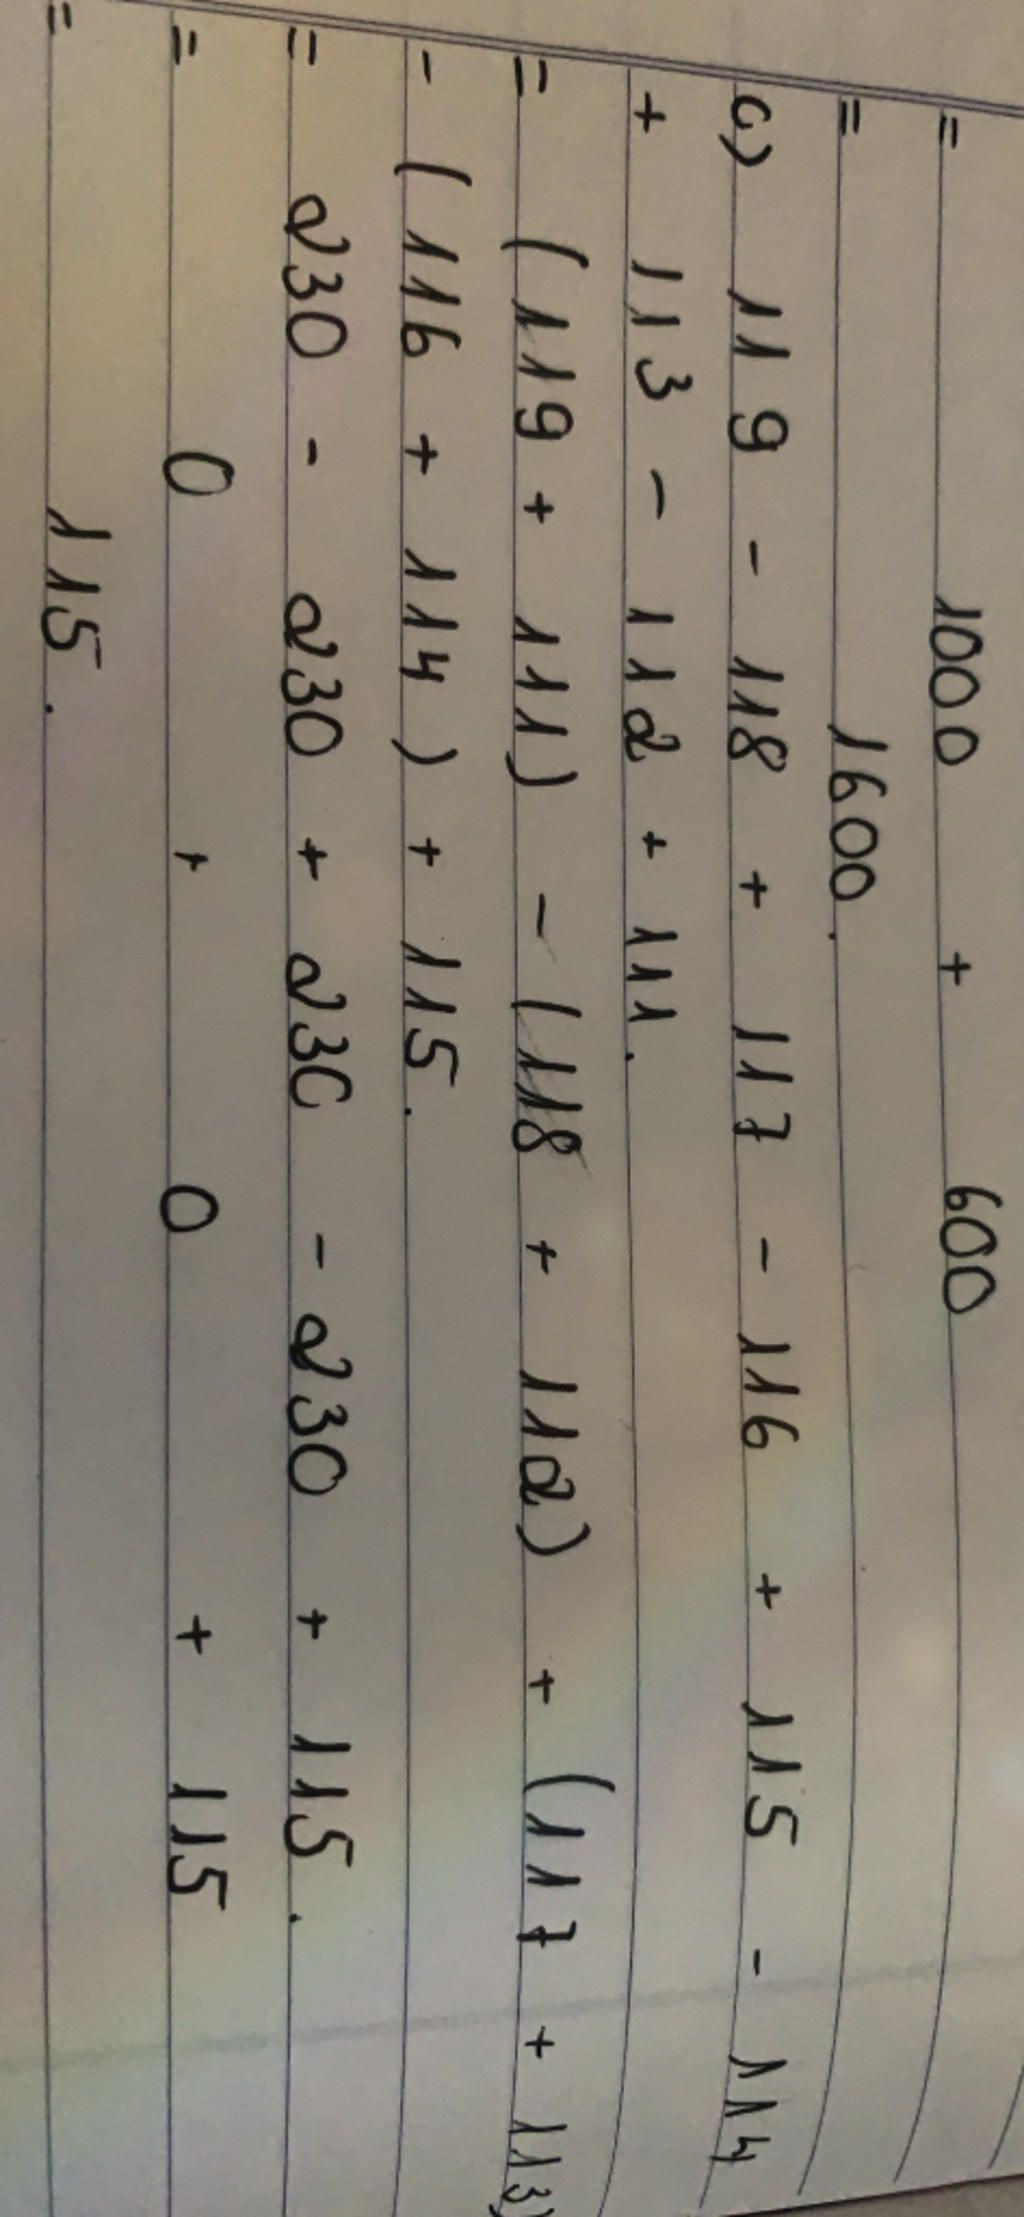 = 1000 + 600
= 1600.
c) 119 - 118 + 117 - 116 + 115 - 114
+ 113 - 112 + 111.
= (119 + 111) - (118 + 112) + (117 + 113)
- (116 + 114) + 115.
= 230 - 230 + 230 - 230 + 115.
= 0 + 0 + 115
= 115.